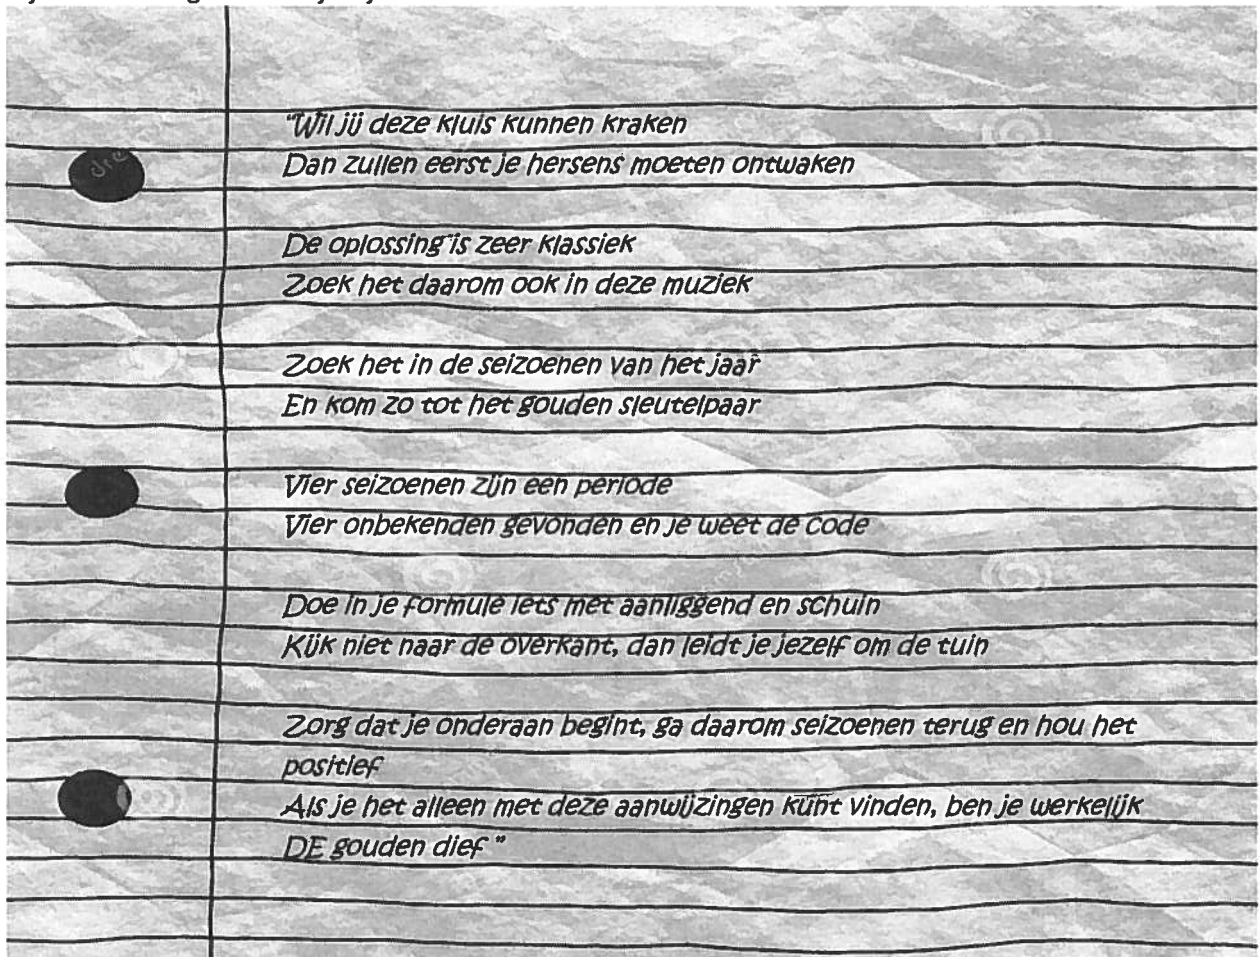 "Wil jij deze kluis kunnen kraken
Dan zullen eerst je hersens moeten ontwaken
De oplossing is zeer klassiek
Zoek het daarom ook in deze muziek
Zoek het in de seizoenen van het jaar
En kom zo tot het gouden sleutelpaar
Vier seizoenen zijn een periode
Vier onbekenden gevonden en je weet de code
Doe in je formule iets met aanliggend en schuin
Kijk niet naar de overkant, dan leidt je jezelf om de tuin
Zorg dat je onderaan begint, ga daarom seizoenen terug en hou het
positief
Als je het alleen met deze aanwijzingen kunt vinden, ben je werkelijk
DE gouden dief"